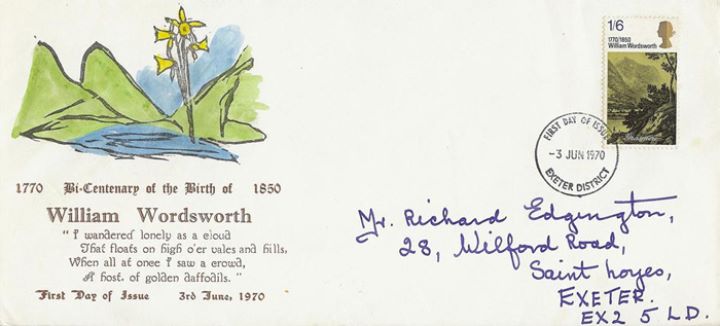 1/6
1770/1850
William Wordsworth
Grasmere
FIRST DAY OF ISSUE
-3 JUN 1970
EXETER DISTRICT
1770 Bi-Centenary of the Birth of 1850
William Wordsworth
"I wandered lonely as a cloud
That floats on high o'er vales and hills,
When all at once I saw a crowd,
A host, of golden daffodils."
First Day of Issue 3rd June, 1970
Mr. Richard Edgington,
28, Wilford Road,
Saint hoyes,
EXETER.
EX2 5 LD.